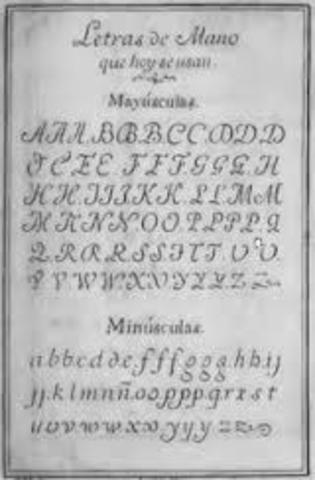 Letras de Mano
que hoy se usan.
Mayúsculas.
A A A. B B B. C C. D D D
E C E E. F F F. G G G. H
H H. I I I. K K. L L. M M
M K N N. O O. P P P P. Q
Q. R R R. S S. T T T. U U.
V V V W W. X X Y Y Y. Z Z
Minúsculas.
a b b c d d e f f f g g g. h h i j
j j. k l m n ñ o o p p p q r x s t
u v v w w w x x. y y y. z z